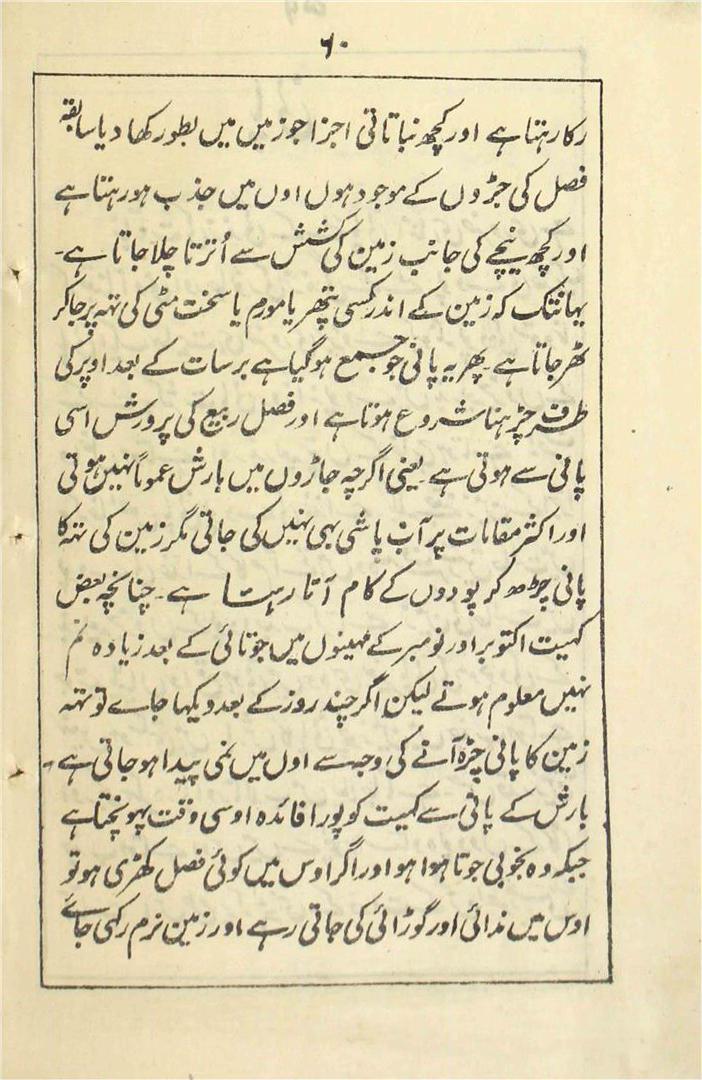 ۶۰
رکا رہتا ہے اور کچھ نباتاتی اجزا جو زمین میں بطور کھاد یا سابقہ
فصل کی جڑوں کے موجود ہوں اون میں جذب ہو رہتا ہے
اور کچھ نیچے کی جانب زمین کی کشش سے اُترتا چلا جاتا ہے۔
یہانتک کہ زمین کے اندر کسی پتھر یا مورم یا سخت مٹی کی تہہ پر جا کر
ٹھر جاتا ہے۔ پھر یہ پانی جو جمع ہو گیا ہے برسات کے بعد اوپر کی
طرف چڑہنا شروع ہوتا ہے اور فصل ربیع کی پرورش اسی
پانی سے ہوتی ہے یعنی اگرچہ جاڑوں میں بارش عموماً نہیں ہوتی
اور اکثر مقامات پر آب پاشی بہی نہیں کی جاتی مگر زمین کی تہہ کا
پانی چڑھ کر پودوں کے کام آتا رہتا ہے۔ چنانچہ بعض
کہیت اکتوبر اور نومبر کے مہینوں میں جوتائی کے بعد زیادہ نم
نہیں معلوم ہوتے لیکن اگر چند روز کے بعد دیکہا جاے تو تہہ
زمین کا پانی چڑہ آنے کی وجہ سے اون میں نمی پیدا ہو جاتی ہے۔
بارش کے پانی سے کہیت کو پورا فائدہ اوسی وقت پہونچتا ہے
جبکہ وہ بخوبی جوتا ہوا ہو اور اگر اوس میں کوئی فصل کھڑی ہو تو
اوس میں ندائی اور گوڑائی کی جاتی رہے اور زمین نرم رکہی جائے